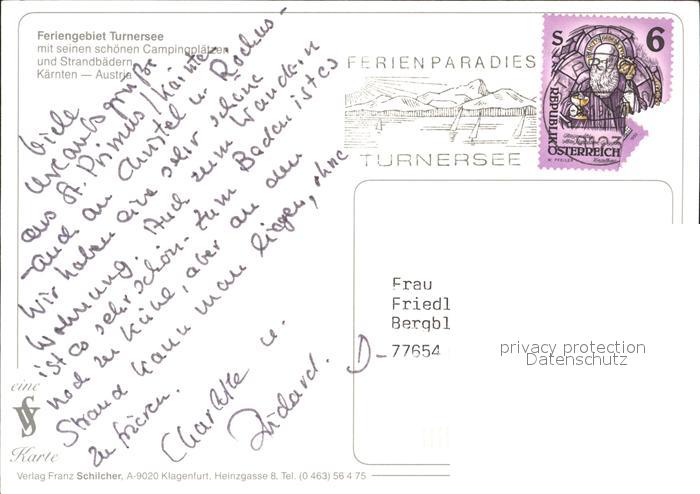 Feriengebiet Turnersee
mit seinen schönen Campingplätzen
und Strandbädern
Kärnten — Austria
Viele
Urlaubsgrüße
aus St. Primus/Kärnten
- auch an Christel u.
Wir haben eine sehr schöne
Wohnung. Auch zum Wandern
ist es sehr schön. Zum Baden ist es
noch zu kühl, aber an dem
Strand kann man liegen, ohne
zu frieren.
Charlotte u.
FERIENPARADIES
TURNERSEE
S 6
REPUBLIK
ÖSTERREICH
Frau
Friedl
Bergbl
D-77654
privacy protection
Datenschutz
eine
Karte
Verlag Franz Schilcher, A-9020 Klagenfurt, Heinzgasse 8, Tel. (0 463) 56 4 75